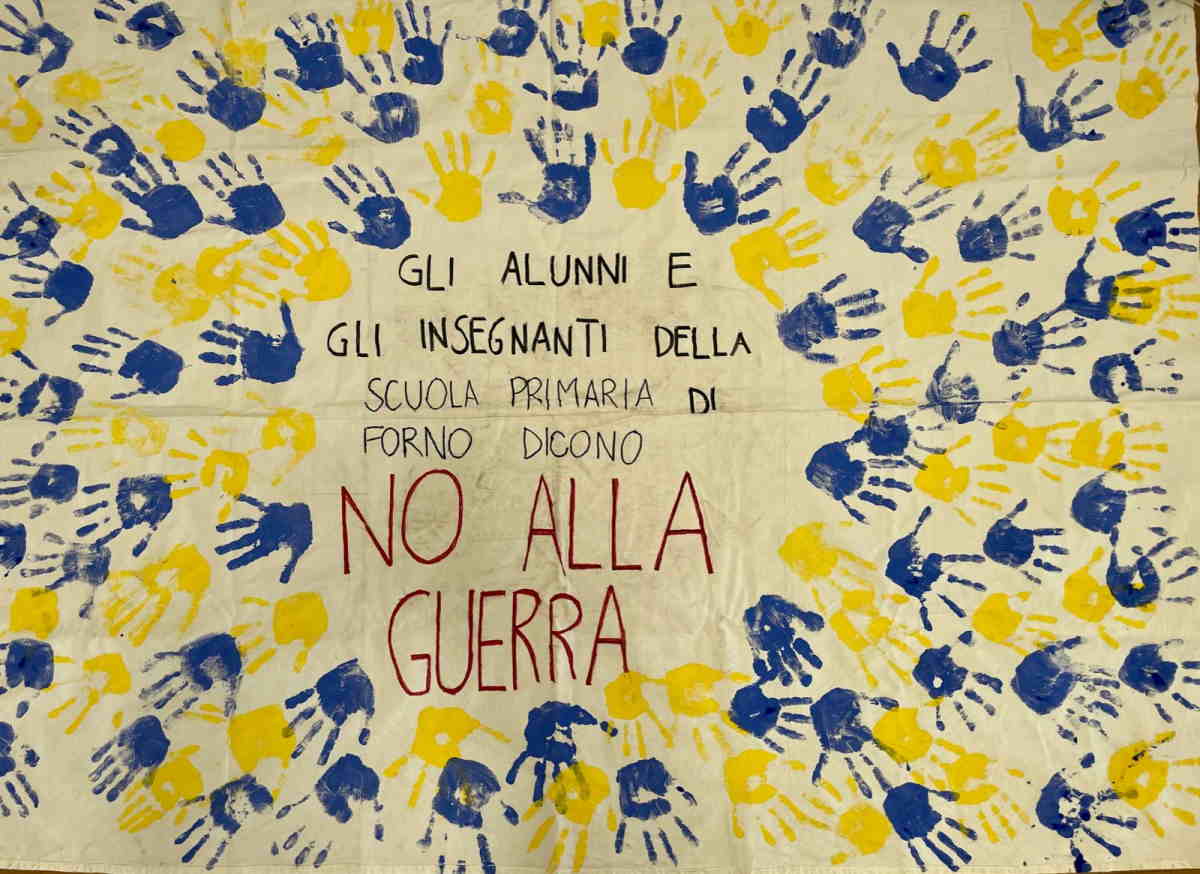 GLI ALUNNI E
GLI INSEGNANTI DELLA
SCUOLA PRIMARIA DI
FORNO DICONO
NO ALLA
GUERRA